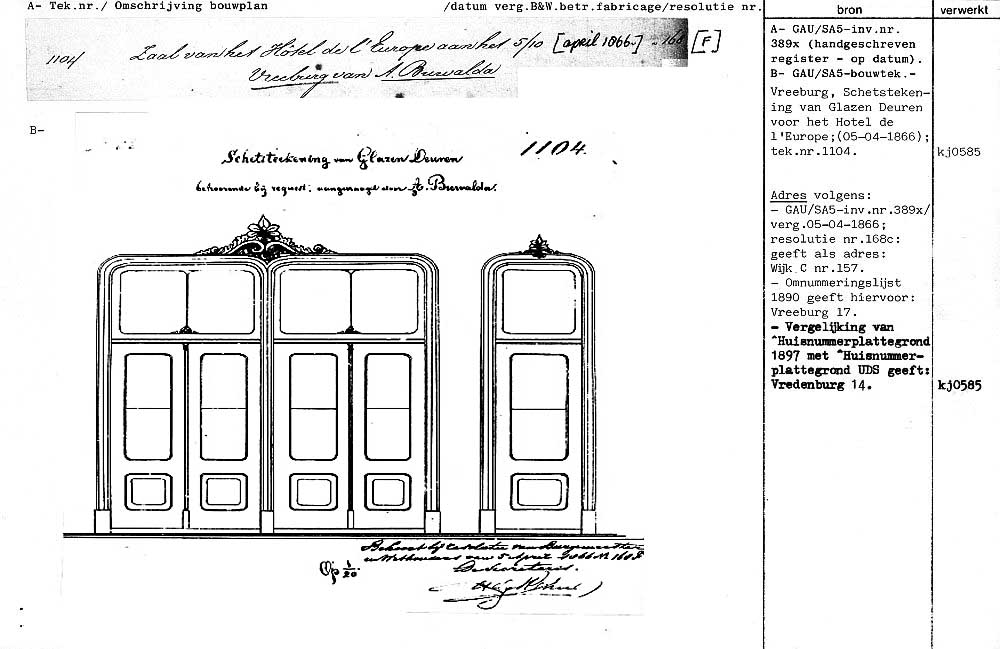 A- Tek.nr./ Omschrijving bouwplan /datum verg.B&W.betr.fabricage/resolutie nr.
1104 Zaal van het Hôtel de l'Europe aan het 5/10 [april 1866.] - 168 [F]
Vreeburg van A. Buwalda
B-
1104.
Schetsteekening van Glazen Deuren
behoorende bij request; aangevraagd door A. Buwalda.
Op 1/20.
Behoort bij resolutie van Burgemeester
en Wethouders van 5 April 1866 N 168
De Secretaris.
bron
A- GAU/SA5-inv.nr.
389x (handgeschreven
register - op datum).
B- GAU/SA5-bouwtek.-
Vreeburg, Schetsteken-
ing van Glazen Deuren
voor het Hotel de
l'Europe;(05-04-1866);
tek.nr.1104.
Adres volgens:
- GAU/SA5-inv.nr.389x/
verg.05-04-1866;
resolutie nr.168c:
geeft als adres:
Wijk C nr.157.
- Omnummeringslijst
1890 geeft hiervoor:
Vreeburg 17.
- Vergelijking van
^Huisnummerplattegrond
1897 met ^Huisnummer-
plattegrond UDS geeft:
Vredenburg 14.
verwerkt
kj0585
kj0585